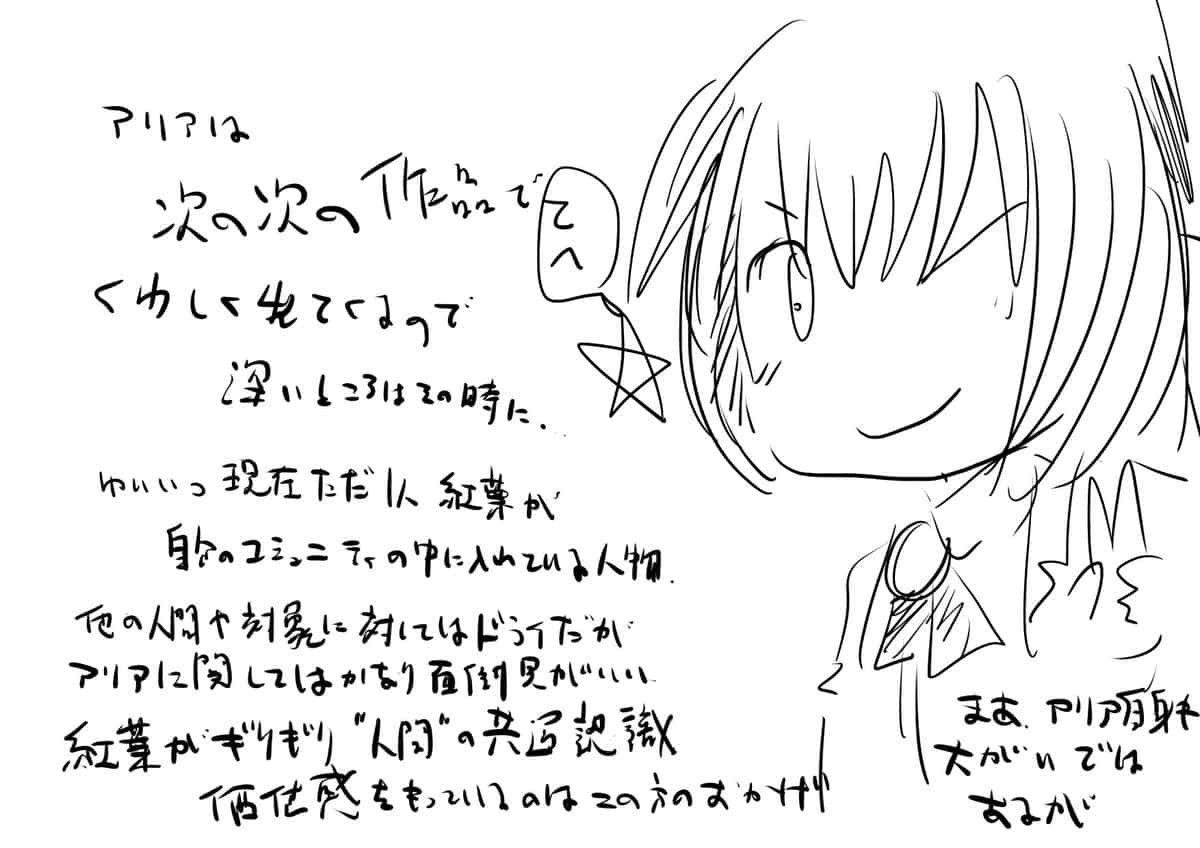 アリアは
次の次の作品で
くわしく出てくるので
深いところはその時に.
てへ
ゆいいつ現在ただ1人紅葉が
自分のコミュニティの中に入れている人物.
他の人間や対象に対してはドライだが
アリアに関してはかなり面倒見がいい
紅葉がギリギリ"人間"の共通認識
価値感をもっているのはこの方のおかげ
まぁ.アリア自身
大がいでは
あるが